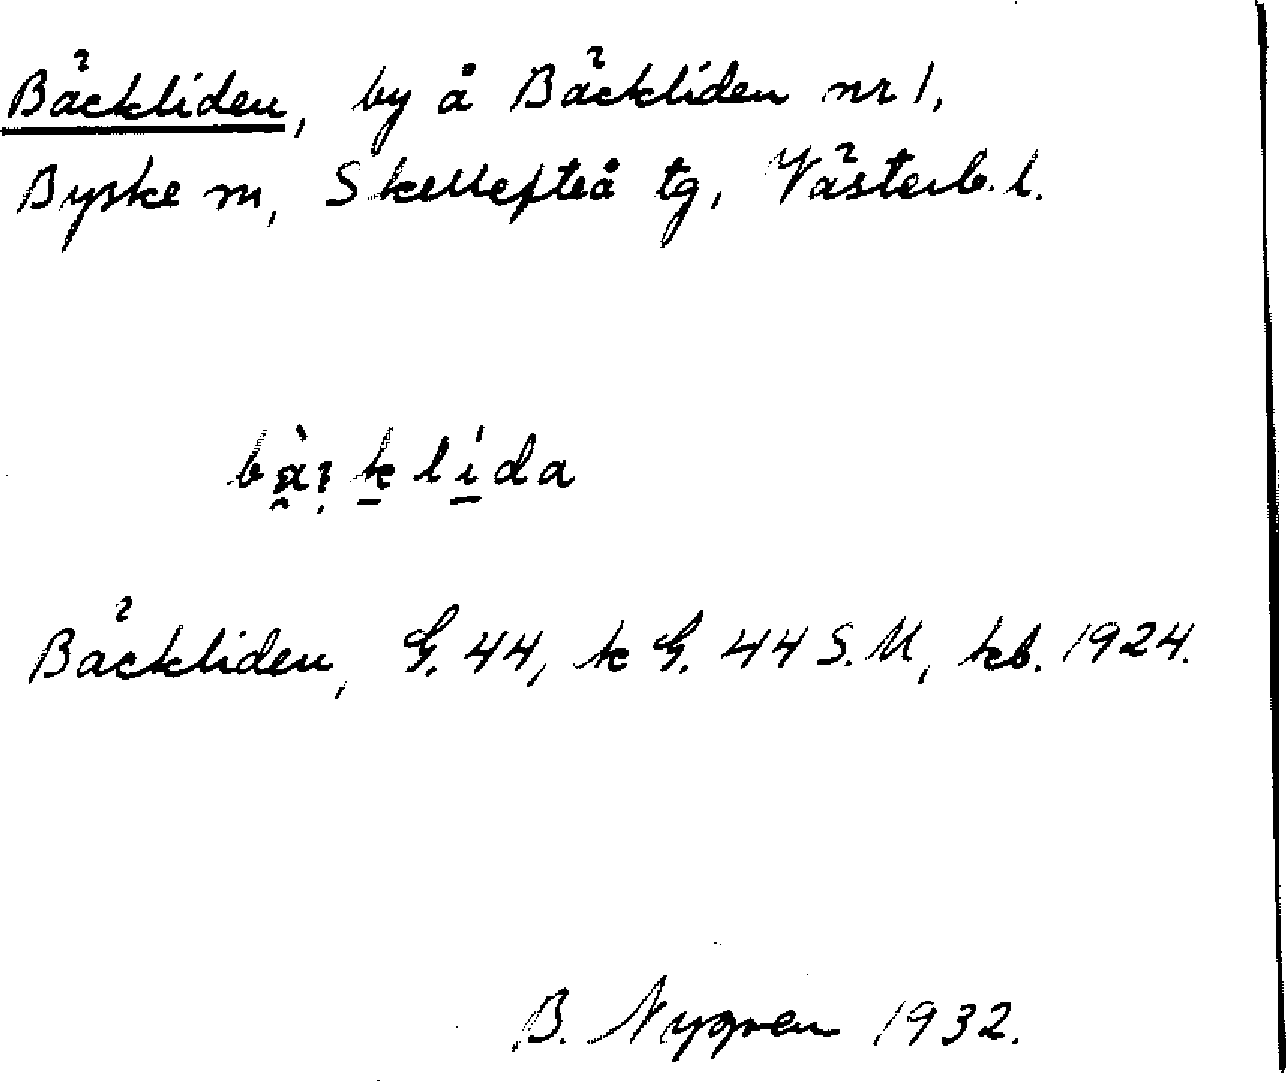 Bäckliden, by å Bäckliden nr 1,
Byske sn, Skellefteå tg, Västerb. l.
Bäckliden, G. 44, k G. 44 S.M, kb. 1924.
B. Nygren 1932.